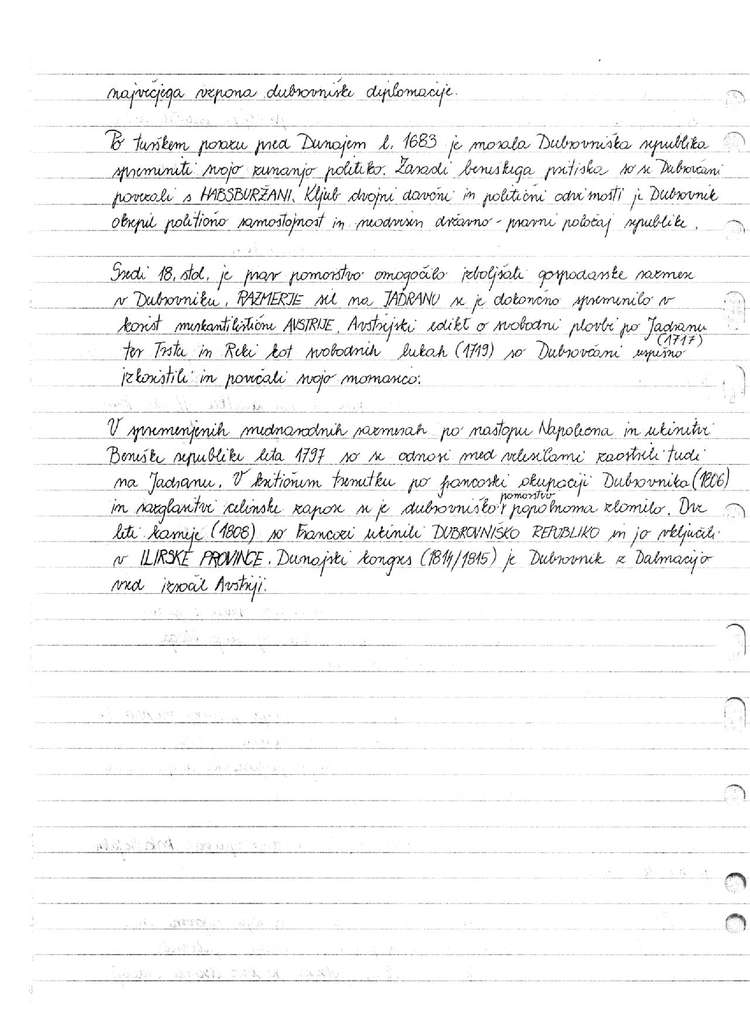 največjega vzpona dubrovniške diplomacije.
Po turškem porazu pred Dunajem l. 1683 je morala Dubrovniška republika
spremeniti svojo zunanjo politiko. Zaradi beneškega pritiska so se Dubrovčani
povezali s HABSBURŽANI. Kljub dvojni davčni in politični odvisnosti je Dubrovnik
okrepil politično samostojnost in neodvisen državno-pravni položaj republike.
Sredi 18. stol. je prav pomorstvo omogočilo izboljšati gospodarske razmere
v Dubrovniku. RAZMERJE sil na JADRANU se je dokončno spremenilo v
korist merkantilistične AVSTRIJE. Avstrijski edikt o svobodni plovbi po Jadranu
(1717)
ter Trstu in Reki kot svobodnih lukah (1719) so Dubrovčani uspešno
izkoristili in povečali svojo mornarico.
V spremenjenih mednarodnih razmerah po nastopu Napoleona in ukinitvi
Beneške republike leta 1797 so se odnosi med velesilami zaostrili tudi
na Jadranu. V kritičnem trenutku po francoski okupaciji Dubrovnika (1806)
in razglasitvi celinske zapore se je dubrovniško pomorstvo popolnoma zlomilo. Dve
leti kasneje (1808) so Francozi ukinili DUBROVNIŠKO REPUBLIKO in jo vključili
v ILIRSKE PROVINCE. Dunajski kongres (1814/1815) je Dubrovnik z Dalmacijo
vred izročil Avstriji.